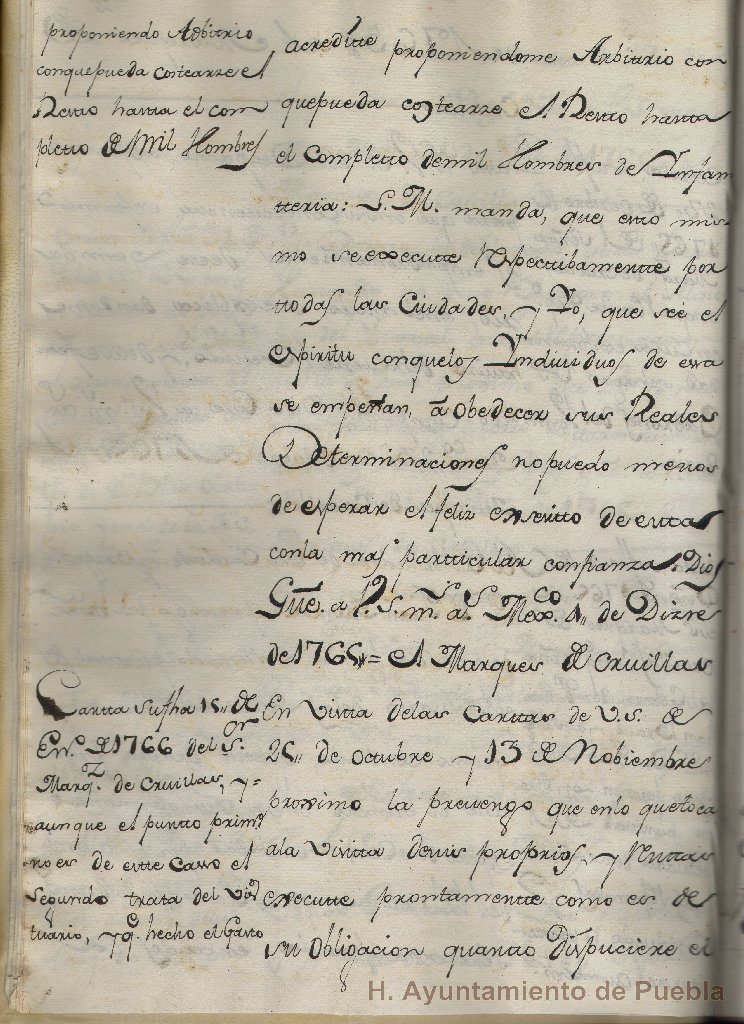 proponiendo Arbitrio
conquepueda costearze el
Resto hasta el com
pletto de Mil Hombres
acreditte proponiendome Arbitrio con
quepueda costearze el Resto hasta
el Completto demil Hombres de Infan
tteria: S. M. manda, que esto mis
mo se execute respectibamentte por
ttodas las Ciudades, y Yo, que seé el
espiritu conquelos Yndividuos de essa
se empeñan, á obedecer sus Reales
Determinaciones nopuedo menos
de esperar el feliz exsitto de esttas
conla mas partticular confianza. Dios
Gûe. a V. S. m. a.s Mex.co 4,, de Dizre
de1765,,= el Marques de Cruillas
Cartta sufha 15,, de
En.o de1766 del S.or
Marq.z de Cruillas, y=
aunque el puntto prim.o
noes de este Casso el
Segundo trata del
tuario, y q.e hecho el Gasto
En Vista delas Carttas de V.S. de
26,, de Octubre y 13 de Nobiembre
proximo la prevengo que enlo quetoca
ala Visitta desus proprios, y Renttas
execute prontamentte como es de
su Obligacion quantto dispuciere el
H. Ayuntamiento de Puebla